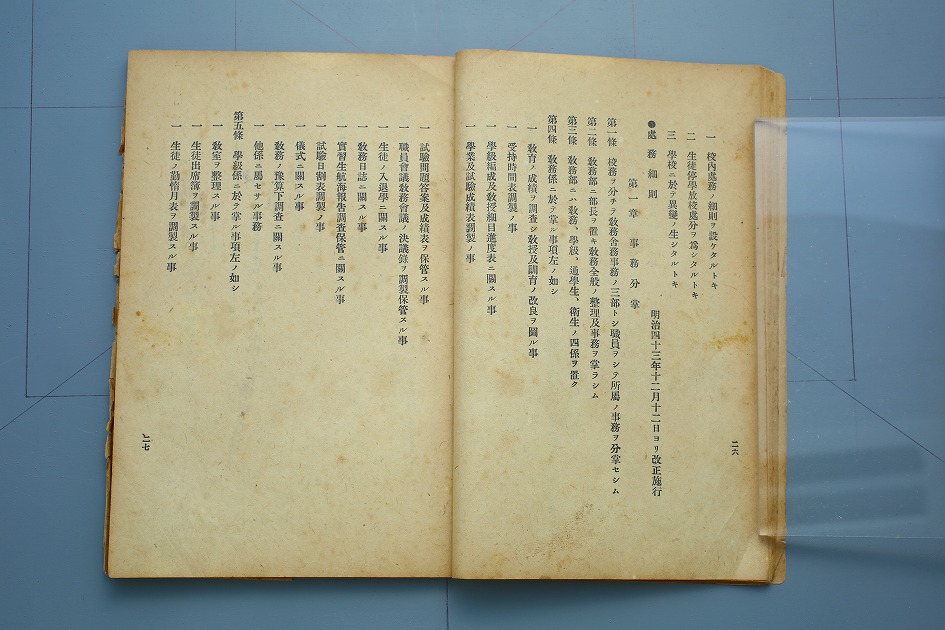 一 校內處務ノ細則ヲ設ケタルトキ
二 生徒停學放校處分ヲ爲シタルトキ
三 學校ニ於テ異變ノ生シタルトキ
●處務細則 明治四十三年十二月十二日ヨリ改正施行
第一章 事務分掌
第一條 校務ヲ分チテ敎務舍務事務ノ三部トシ職員ヲシテ所屬ノ事務ヲ分掌セシム
第二條 敎務部ニ部長ヲ置キ敎務全般ノ整理及事務ヲ掌ラシム
第三條 敎務部ニハ敎務、學級、通學生、衛生ノ四係ヲ置ク
第四條 敎務係ニ於テ掌ル事項左ノ如シ
一 敎育ノ成績ヲ調査シ敎授及訓育ノ改良ヲ圖ル事
一 受持時間表調製ノ事
一 學級編成及敎授細目進度表ニ關スル事
一 學業及試驗成績表調製ノ事
二六
一 試驗問題答案及成績表ヲ保管スル事
一 職員會議敎務會議ノ決議錄ヲ調製保管スル事
一 生徒ノ入退學ニ關スル事
一 敎務日誌ニ關スル事
一 實習生航海報吿調査保管ニ關スル事
一 試驗日割表調製ノ事
一 儀式ニ關スル事
一 敎務ノ豫算下調査ニ關スル事
一 他係ニ屬セサル事務
第五條 學級係ニ於テ掌ル事項左ノ如シ
一 敎室ヲ整理スル事
一 生徒出席簿ヲ調製スル事
一 生徒ノ勤惰月表ヲ調製スル事
二七